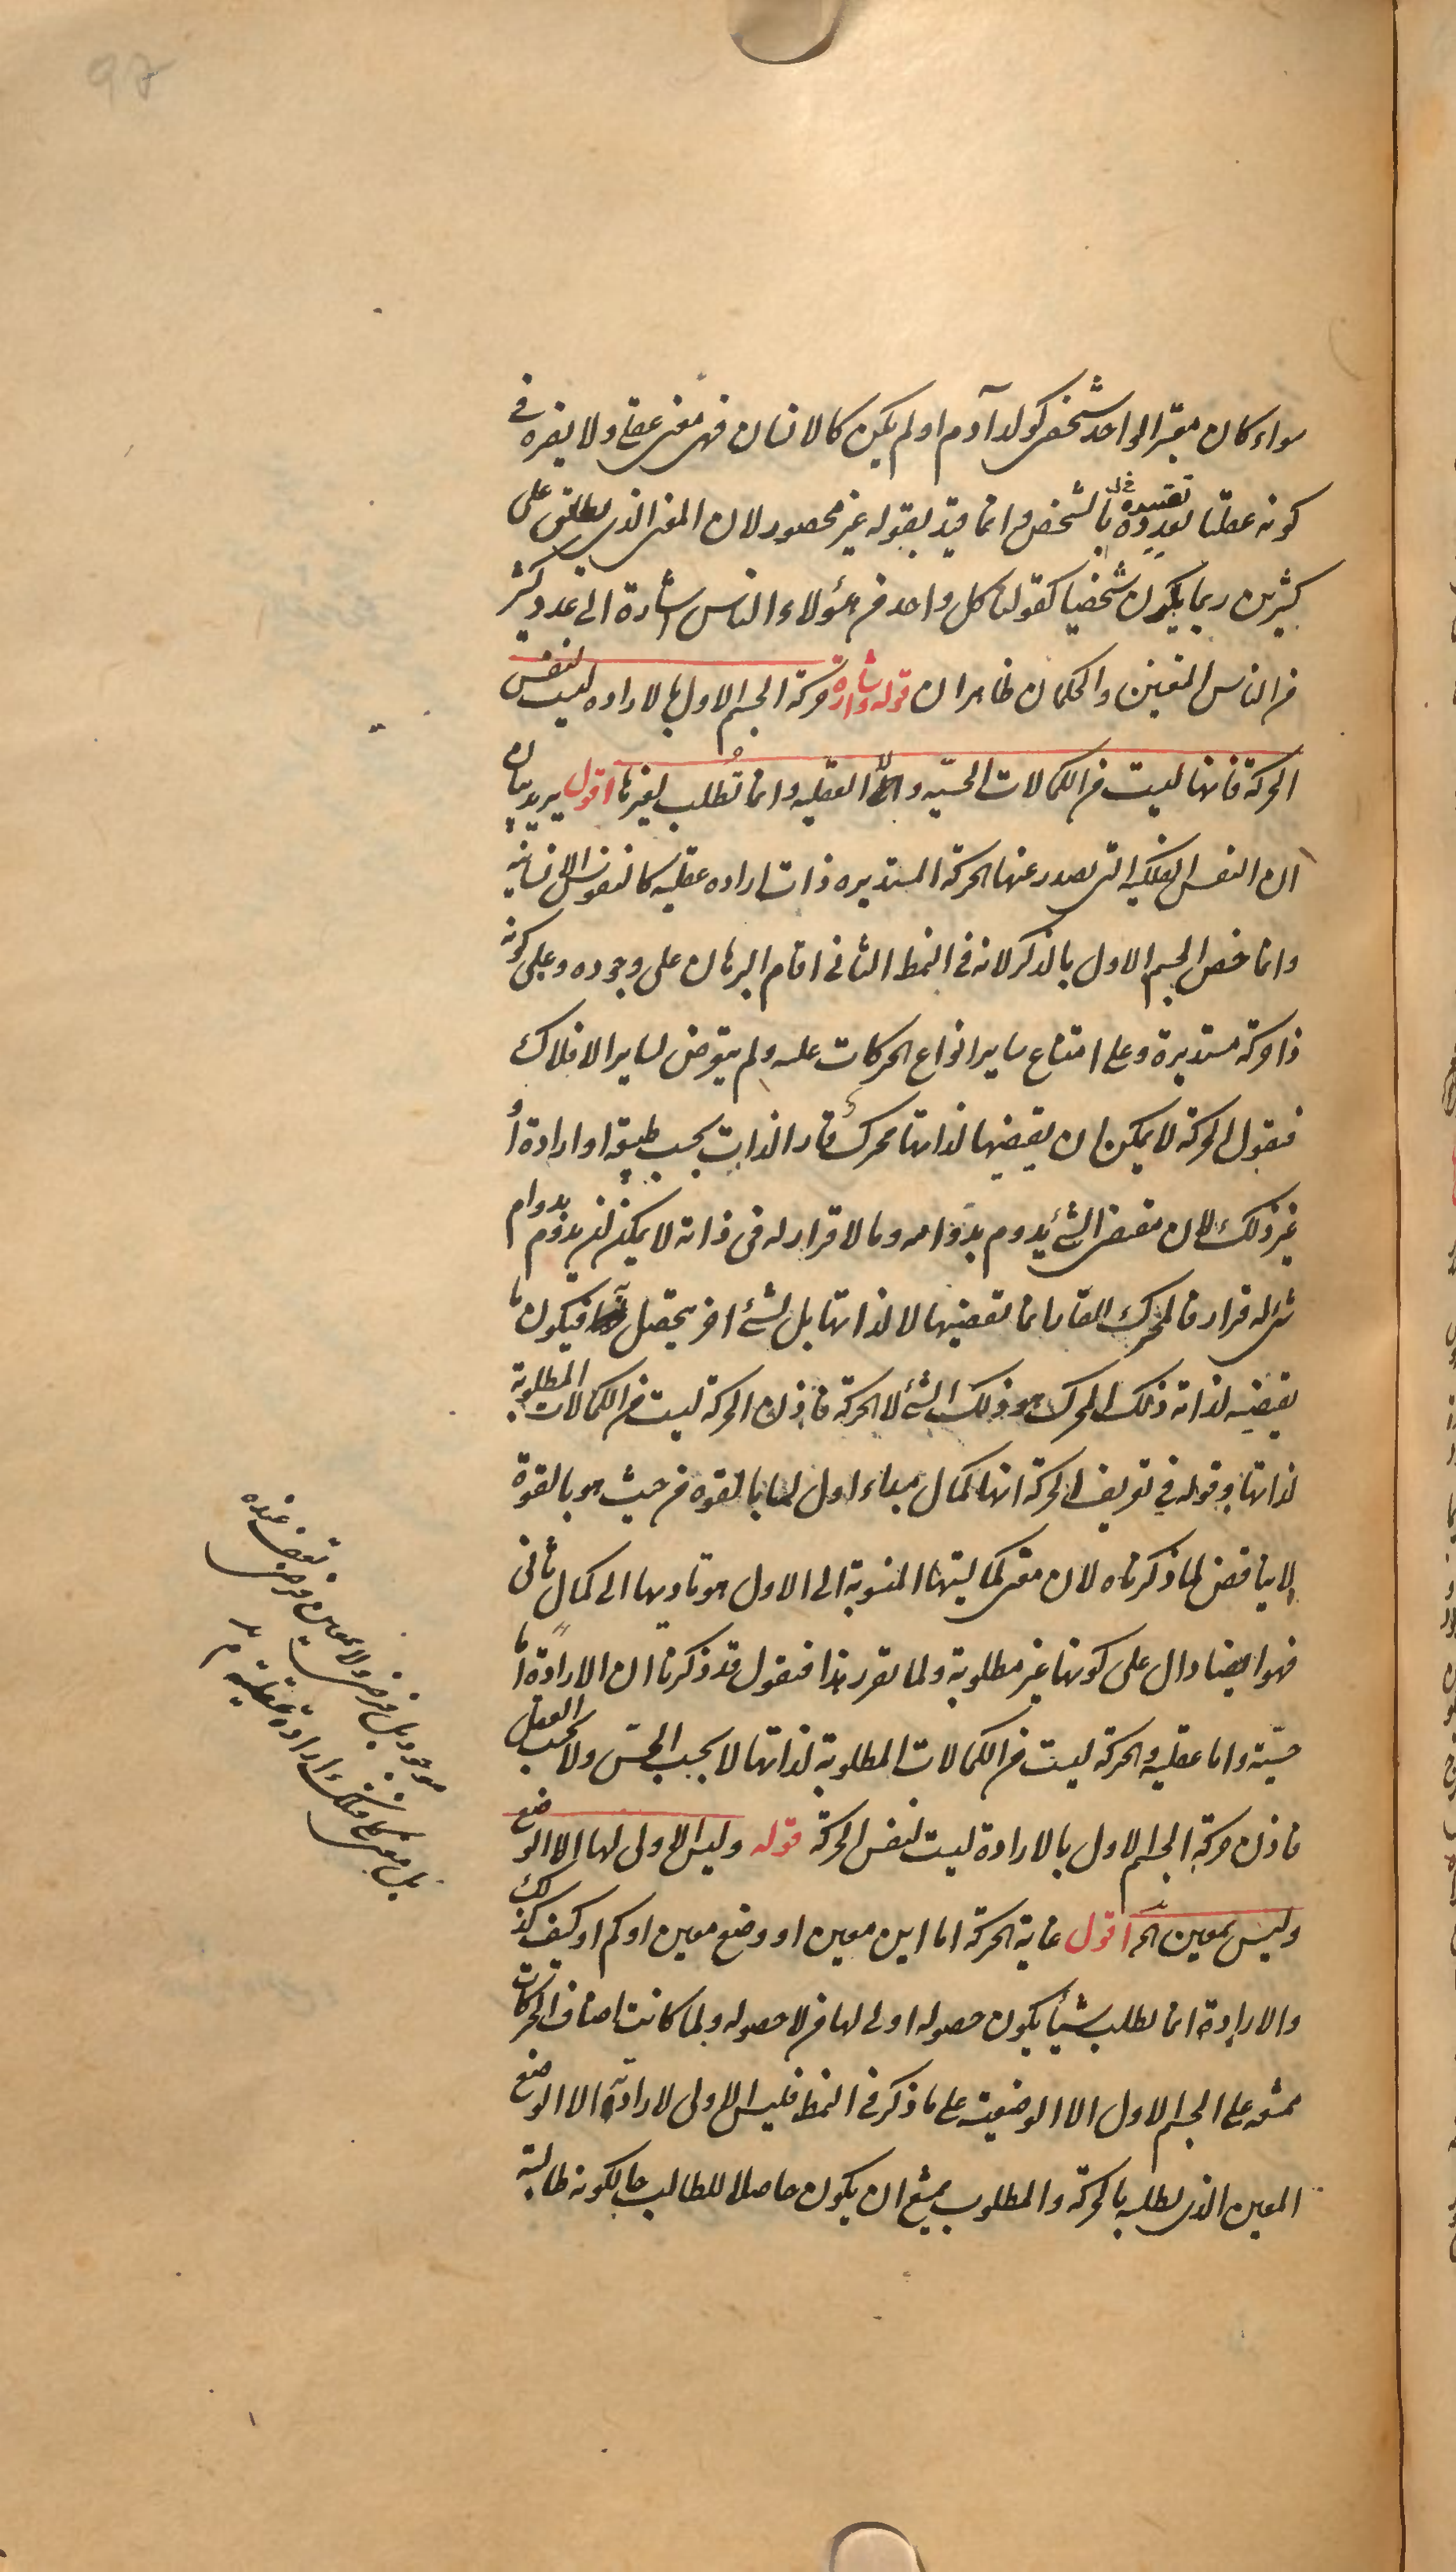 سواء كان معتبرا لواحد شخصى كولد آدم او لم يكن كالانسان فهى معنى عقلى ولا يضره فى
كونه عقليا تقييده بالشخص وانما قيد بقوله غير محصور لان المعنى الذى يطلق على
كثيرين ربما يكون شخصيا كقولنا كل واحد من هؤلاء الناس اشارة الى عدد كثير
من الناس المعينين والحكمان ظاهران قوله اشارة حركة الجسم الاول بالاراده ليست لنفس
الحركة فانها ليست من الكمالات الحسيه ولا العقليه وانما تُطلب لغيرها اقول يريد بيان
ان النفس الفلكية التى تصدر عنها الحركة المستديره ذات اراده عقليه كالنفوس الانسانية
وانما خص الجسم الاول بالذكر لانه فى النمط الثانى اقام البرهان على وجوده وعلى كونه
ذا حركة مستديرة وعلى امتناع ساير انواع الحركات عليه ولم يتعرض لساير الافلاك
فنقول الحركة لا يمكن ان يقتضيها لذاتها محرك قار الذات بحسب طبيعة او ارادة او
غير ذلك لان مقتضى الشئ يدوم بدوامه وما لا قرار له فى ذاته لا يمكن ان يدوم بدوام
شئ له قرار فالمحرك القار انما تقتضيها لا لذاتها بل لشئ اخر يتحصل فيكون ما
يقتضيه لذاته ذلك المحرك هو ذلك الشئ لا الحركة فاذن الحركة ليست من الكمالات المطلوبة
لذاتها وقوله فى تعريف الحركة انها كمال اول لما بالقوه من حيث هو بالقوة
لا يناقض لما ذكرناه لان معنى كماليتها المنسوبة الى الاول هو تاديها الى كمال ثانى
فهو ايضا دال على كونها غير مطلوبة ولما تقرر هذا فنقول قد ذكرنا ان الارادة اما
حسية واما عقلية والحركة ليست من الكمالات المطلوبة لذاتها لا بحسب الحس ولا بحسب العقل
فاذن حركة الجسم الاول بالارادة ليست لنفس الحركة قوله وليس الاولى لها الا الوضع
وليس بمعين الخ اقول غاية الحركة اما اين معين او وضع معين او كم او كيف كذلك
والارادة انما تطلب شيئا يكون حصوله اولى لها من لا حصوله ولما كانت اصناف الحركات
ممتنعه على الجسم الاول الا الوضعية على ما ذكر فى النمط فليس الاولى لارادته الا الوضع
المعين الذى يطلبه بالحركة والمطلوب يمتنع ان يكون حاصلا للطالب حا لكونه طالبه
موجود بل فرضى ولا بمعين فرضى تقف عنده
بل معين كلى فتلك ارادة عقلية